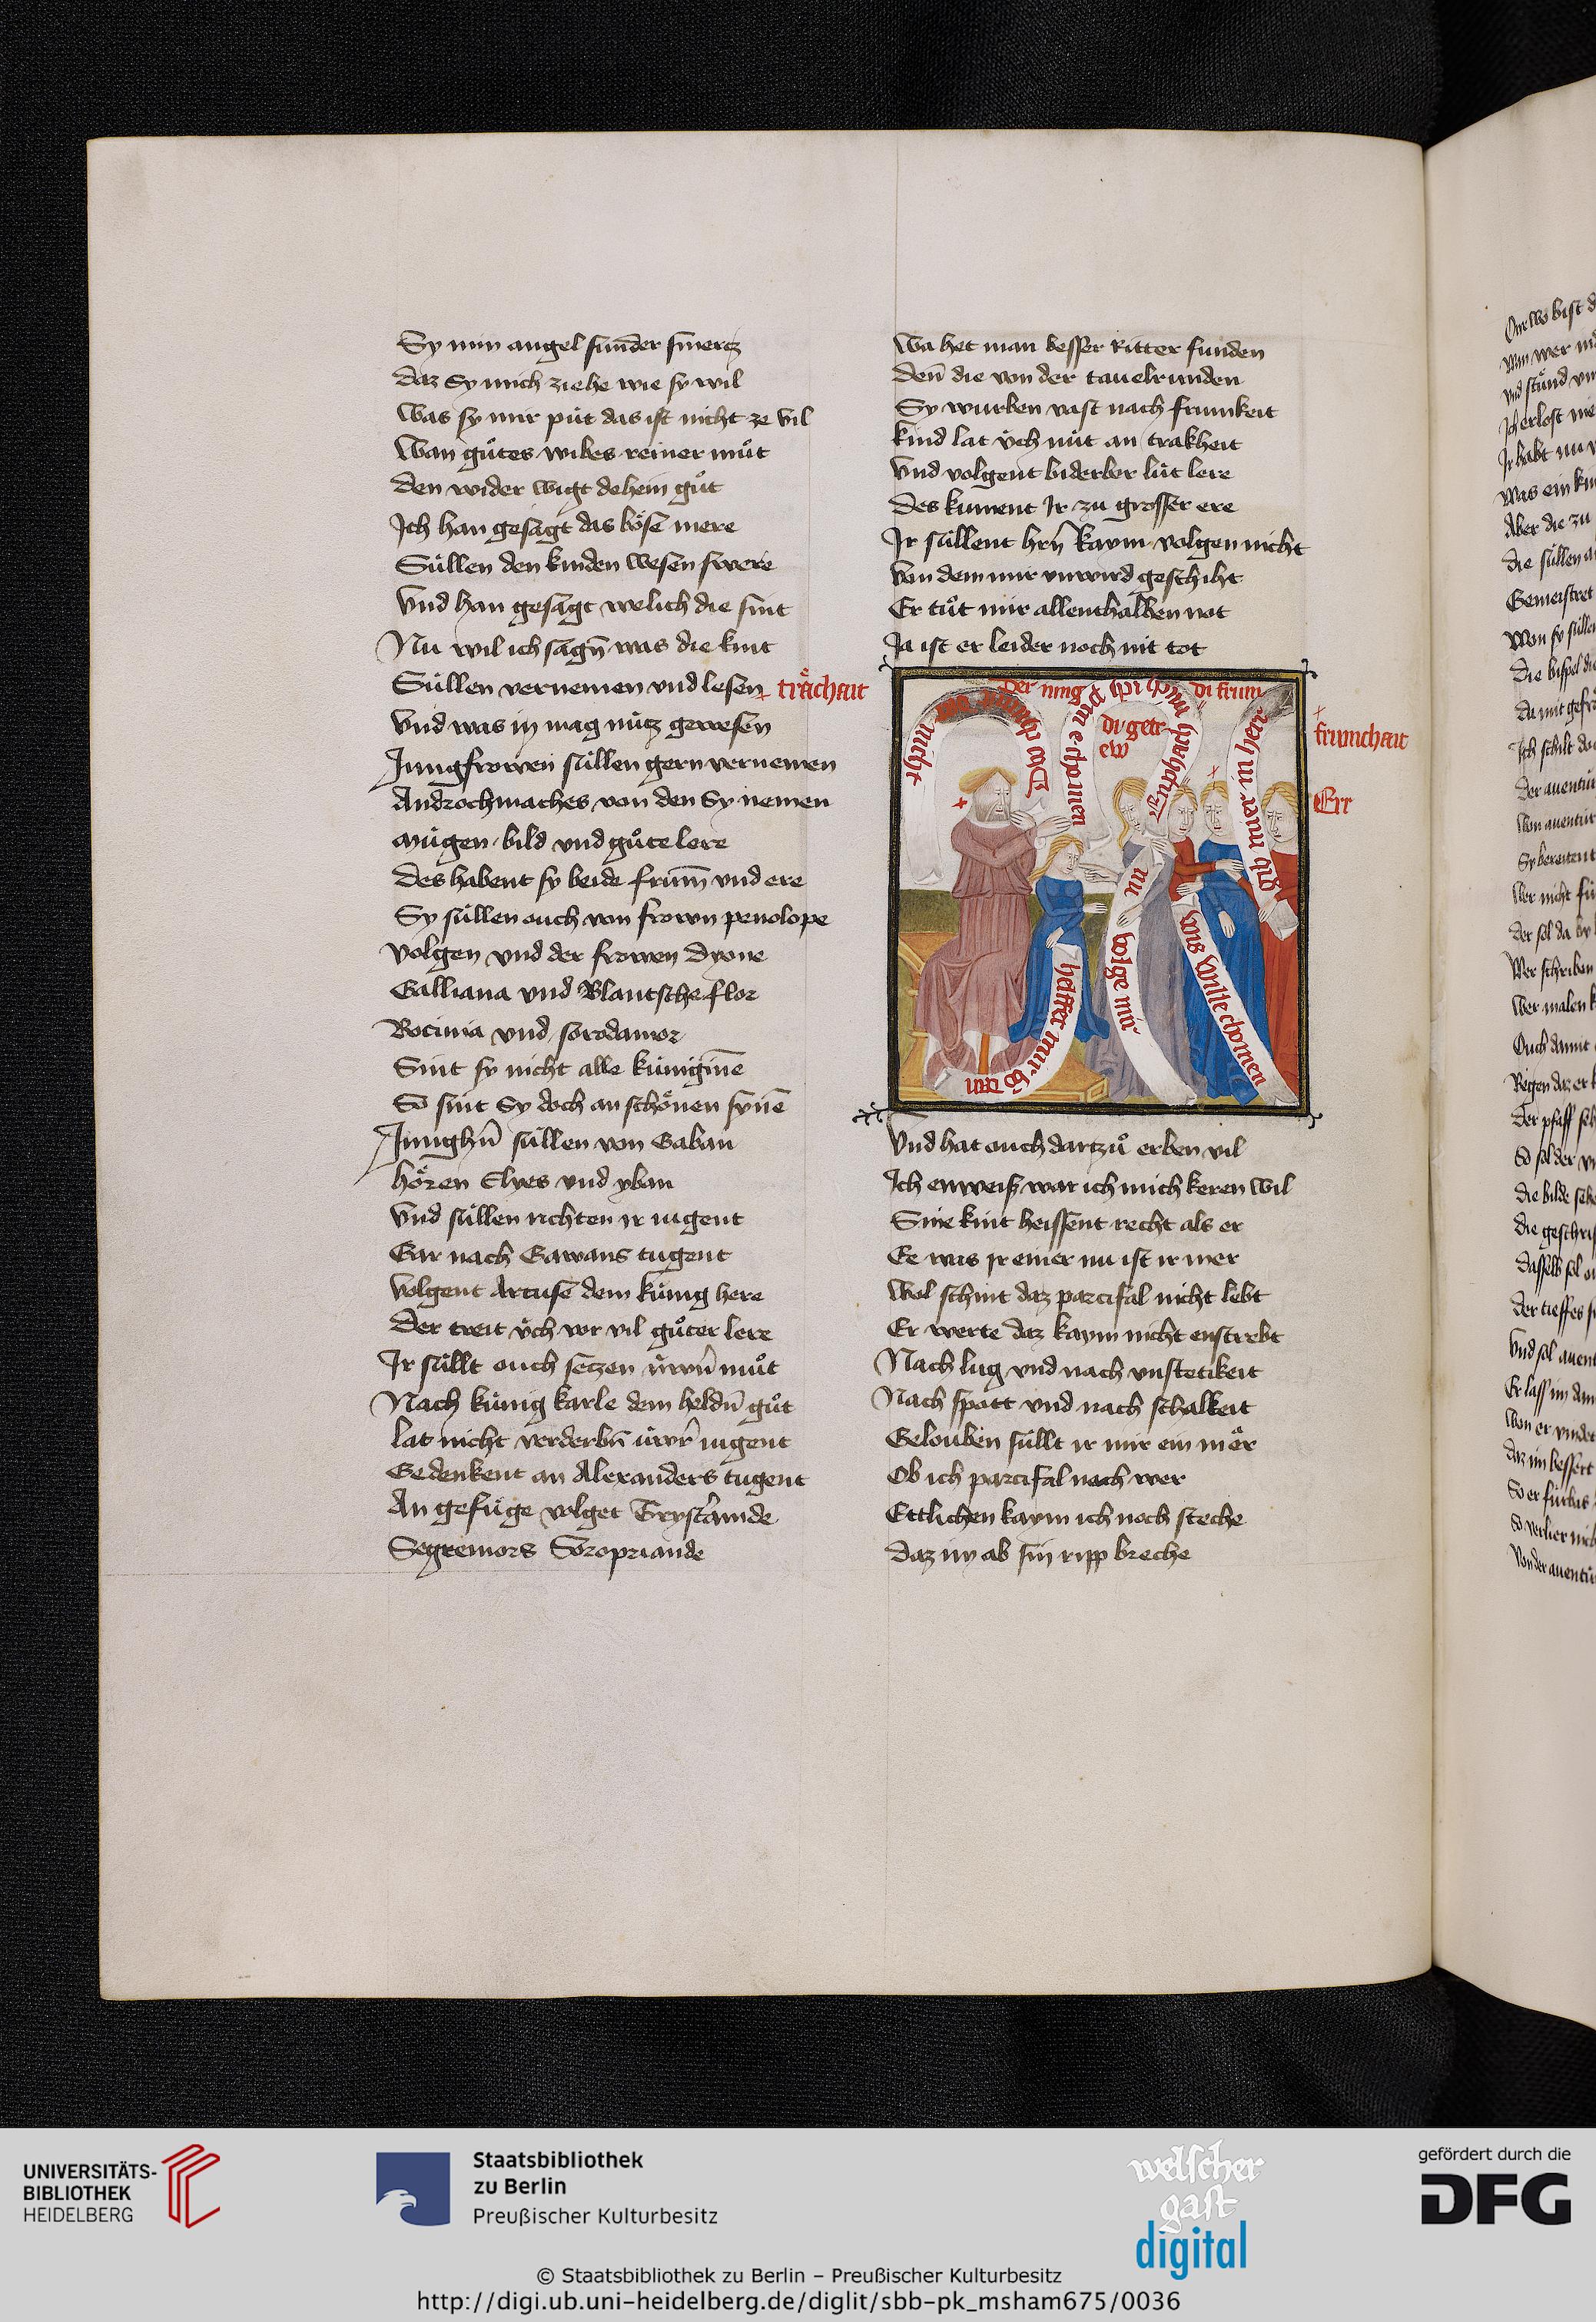 Sy min angel sunder smertz
daz Sy mich ziehe wie sy wil
Was sy mir pút das ist nicht ze vil
Wan gůtes wibes reiner můt
den wider wigt dehein gůt
Ich han gesagt das bőse mere
Sùllen den kinden wesen swere
Vnd han gesagt welich die sint
Nu wil ich sagn̄ was die kint
Sùllen vernemen vnd lesen
trächait
Vnd was in mag nùtz gewesen
Jungfrowen sùllen gern vernemen
Androchmaches von den Sy nemen
Mùgen bild vnd gůte lere
Des habent sy beide frum̄ vnd ere
Sy sùllen ouch von frown penolope
volgen vnd der frowen Dyone
Galliana vnd Blantscheflor
Botinia vnd sorodamor
Sint sy nicht alle kùnigin̄e
So sint Sy doch an schőnen syn̄e
Junghn̄ sùllen von Gaban
hőren Elyes vnd yban
Vnd sùllen richten ir iugent
Gar nach Gawans tugent
Volgent Artuse dem kùnig here
Der treit ùch vor vil gůter lere
Ir sùllt ouch setzen ùwrn̄ můt
Nach kùnig karle dem heldn̄ gůt
lat nicht verderbn̄ ùwr̄ iugent
Gedenkent an Alexanders tugent
An gefùge volget Trystamde
Segremors Soropriande
Wa het man besser Ritter funden
den̄ die von der tauelrunden
Sy wurben vast nach frumkeit
kind lat ùch nùt an trakheit
Vnd volgent biderber lùt lere
Des kument Ir zu grosser ere
Ir sùllent hrn̄ kaym volgen nicht
Von dem mir vnwird geschiht
Er tůt mir allenthalben not
Ja ist er leider noch nit tot
di frum
di getr
ew
frumchait
Err
nicht
Pin echomen
nu volge mir
helffet mir
uns wille chomen
Vnd hat ouch dartzů erben vil
Ich enweiß war ich mich keren wil
Sine kint heissent recht als er
Ee was ir einer nu ist ir mer
Wol schint daz parcifal nicht lebt
Er werte daz kaym nicht enstrebt
Nach lug vnd nach vnstetikeit
Nach spott vnd nach schalkeit
Gelouben sùllt ir mir ein mer
Ob ich parcifal noch wer
Ettlichen kaym ich noch steche
daz im ab sin ripp breche
UNIVERSITÄTS-
BIBLIOTHEK
HEIDELBERG
Staatsbibliothek
zu Berlin
Preußischer Kulturbesitz
welscher
gast
digital
gefördert durch die
DFG
© Staatsbibliothek zu Berlin – Preußischer Kulturbesitz
http://digi.ub.uni-heidelberg.de/diglit/sbb-pk_msham675/0036